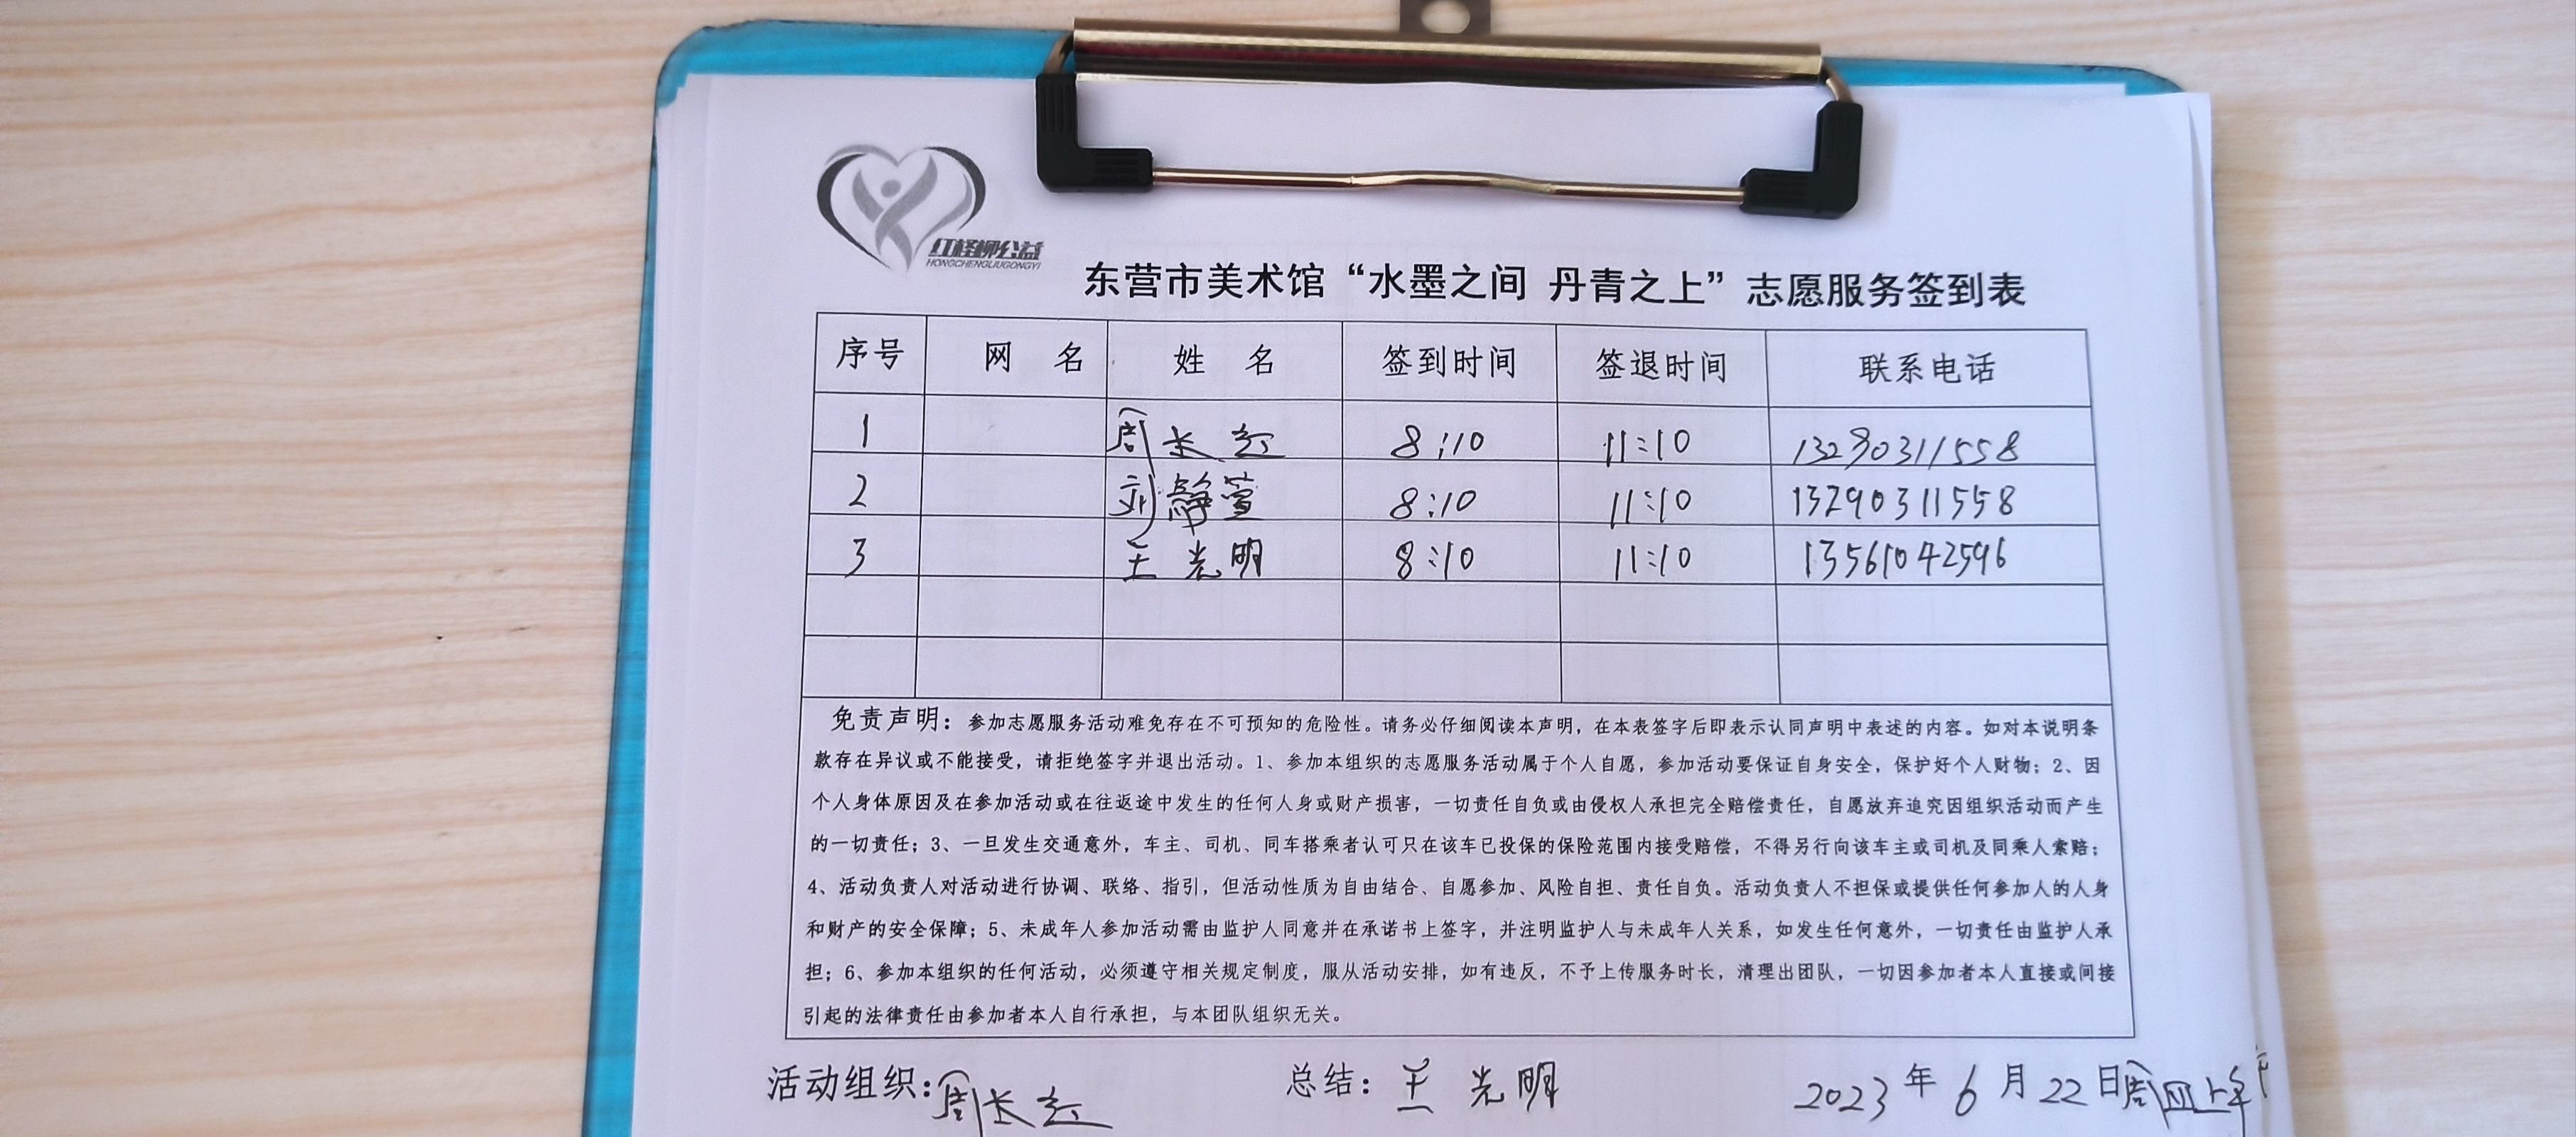 红柽柳公益
HONGCHENGLIUGONGYI
东营市美术馆“水墨之间 丹青之上”志愿服务签到表
序号 网 名 姓 名 签到时间 签退时间 联系电话
1 周长红 8:10 11:10 13290311558
2 刘静萱 8:10 11:10 13290311558
3 王光明 8:10 11:10 13561042596
免责声明：参加志愿服务活动难免存在不可预知的危险性。请务必仔细阅读本声明，在本表签字后即表示认同声明中表述的内容。如对本说明条
款存在异议或不能接受，请拒绝签字并退出活动。1、参加本组织的志愿服务活动属于个人自愿，参加活动要保证自身安全，保护好个人财物；2、因
个人身体原因及在参加活动或在往返途中发生的任何人身或财产损害，一切责任自负或由侵权人承担完全赔偿责任，自愿放弃追究因组织活动而产生
的一切责任；3、一旦发生交通意外，车主、司机、同车搭乘者认可只在该车已投保的保险范围内接受赔偿，不得另行向该车主或司机及同乘人索赔；
4、活动负责人对活动进行协调、联络、指引，但活动性质为自由结合、自愿参加、风险自担、责任自负。活动负责人不担保或提供任何参加人的人身
和财产的安全保障；5、未成年人参加活动需由监护人同意并在承诺书上签字，并注明监护人与未成年人关系，如发生任何意外，一切责任由监护人承
担；6、参加本组织的任何活动，必须遵守相关规定制度，服从活动安排，如有违反，不予上传服务时长，清理出团队，一切因参加者本人直接或间接
引起的法律责任由参加者本人自行承担，与本团队组织无关。
活动组织：周长红 总结：王光明 2023年6月22日周四上午